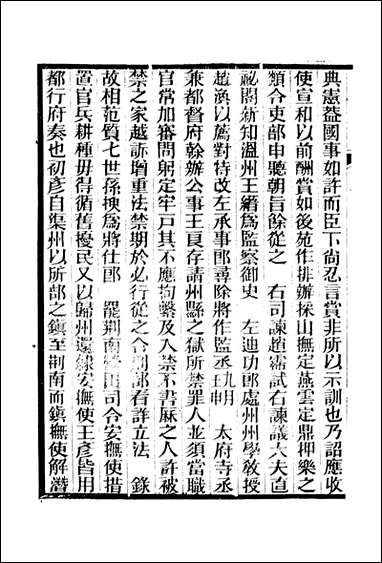 典憲蓋國事如許而臣下尚忍言賞非所以示訓也乃詔應收
使宣和以前酬賞如後苑作排辦採山撫定燕雲定鼎押樂之
類令吏部申聽朝旨餘從之　右司諫趙霈試右諫議大夫直
祕閣新知溫州王縉為監察御史　左迪功郎處州州學敎授
趙渙以薦對特改左承事郎尋除將作監丞　太府寺丞
兼都督府幹辦公事王良存請州縣之獄所禁罪人並須當職
官常加審問躬定牢戸其不應拘繫及入禁不書厤之人許被
禁之家越訴增重法禁期於必行從之令刑部看詳立法　錄
故相范質七世孫㮣為將仕郎　罷荆南營田司令安撫使措
置官兵耕種毋得循舊擾民又以歸州還隸安撫使王彥皆用
都行府奏也初彥自渠州以所部之鎭至荆南而鎭撫使解潛